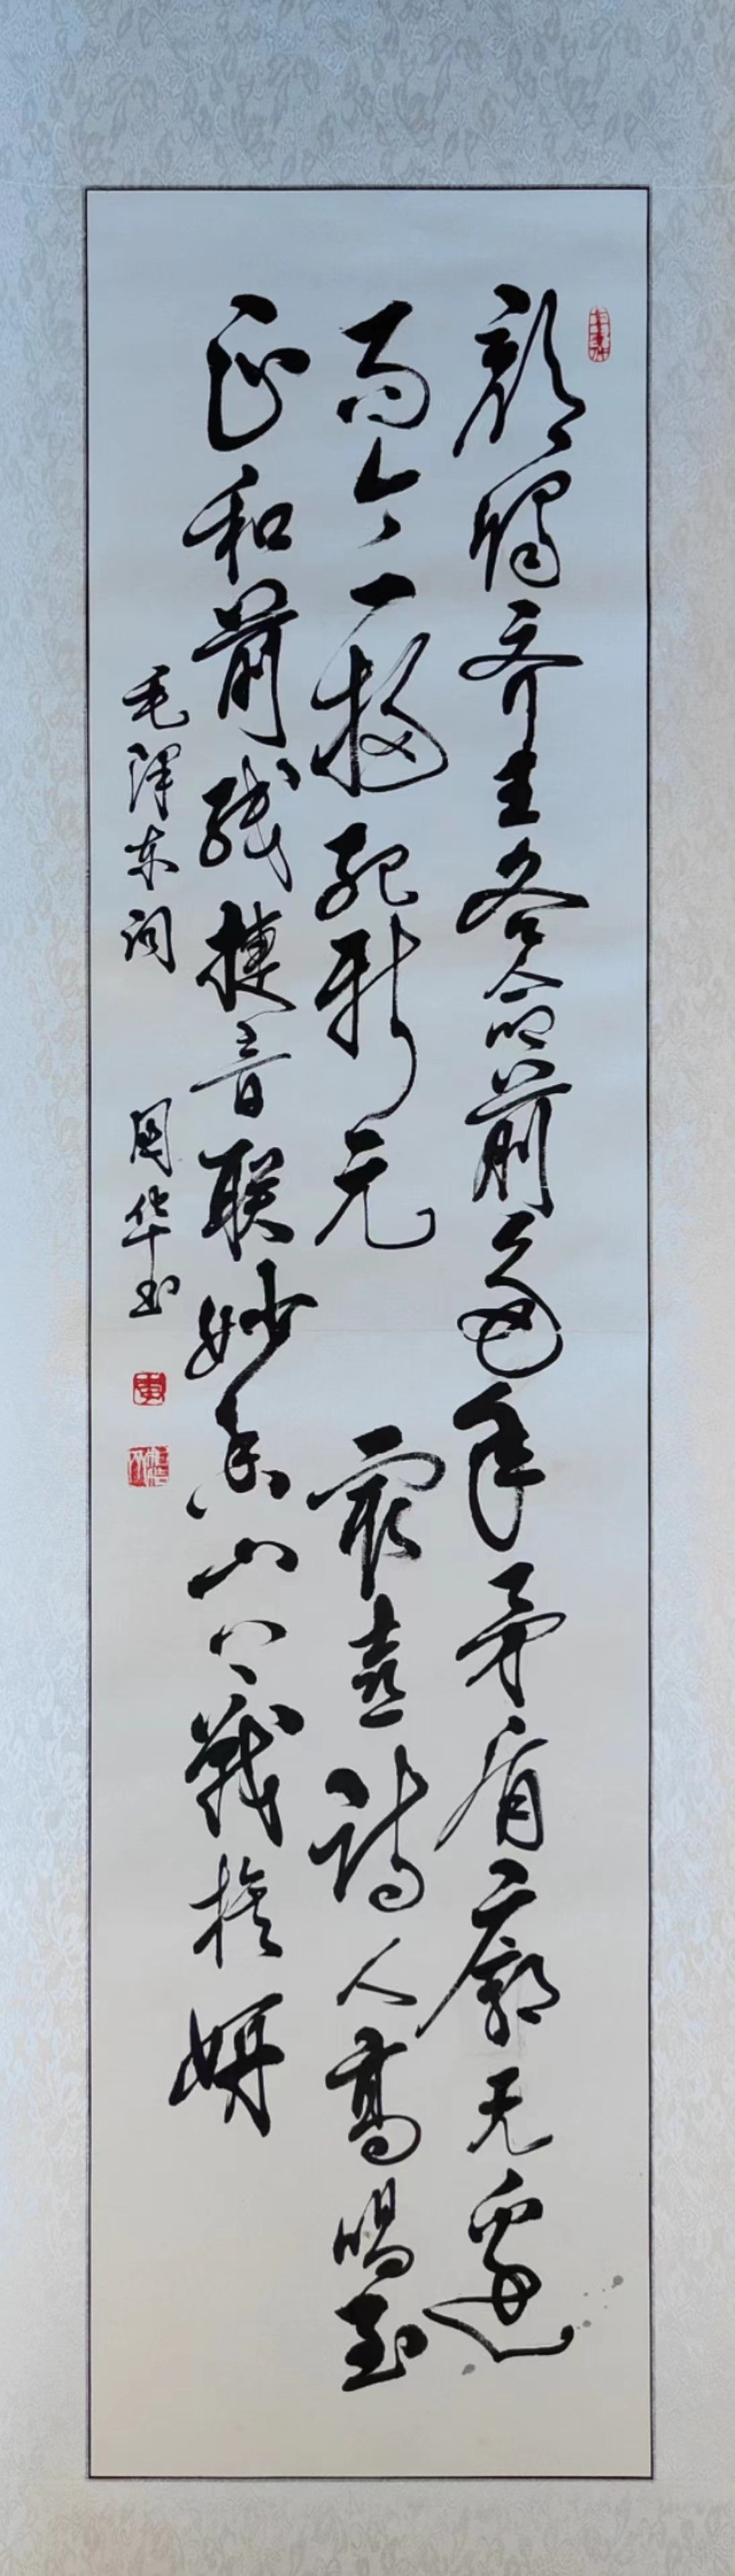 颜斶齐王各命前多年矛盾廓无边
而今一扫纪新元 最喜诗人高唱至
正和前线捷音联妙香山上战旗妍
毛泽东词 国华书